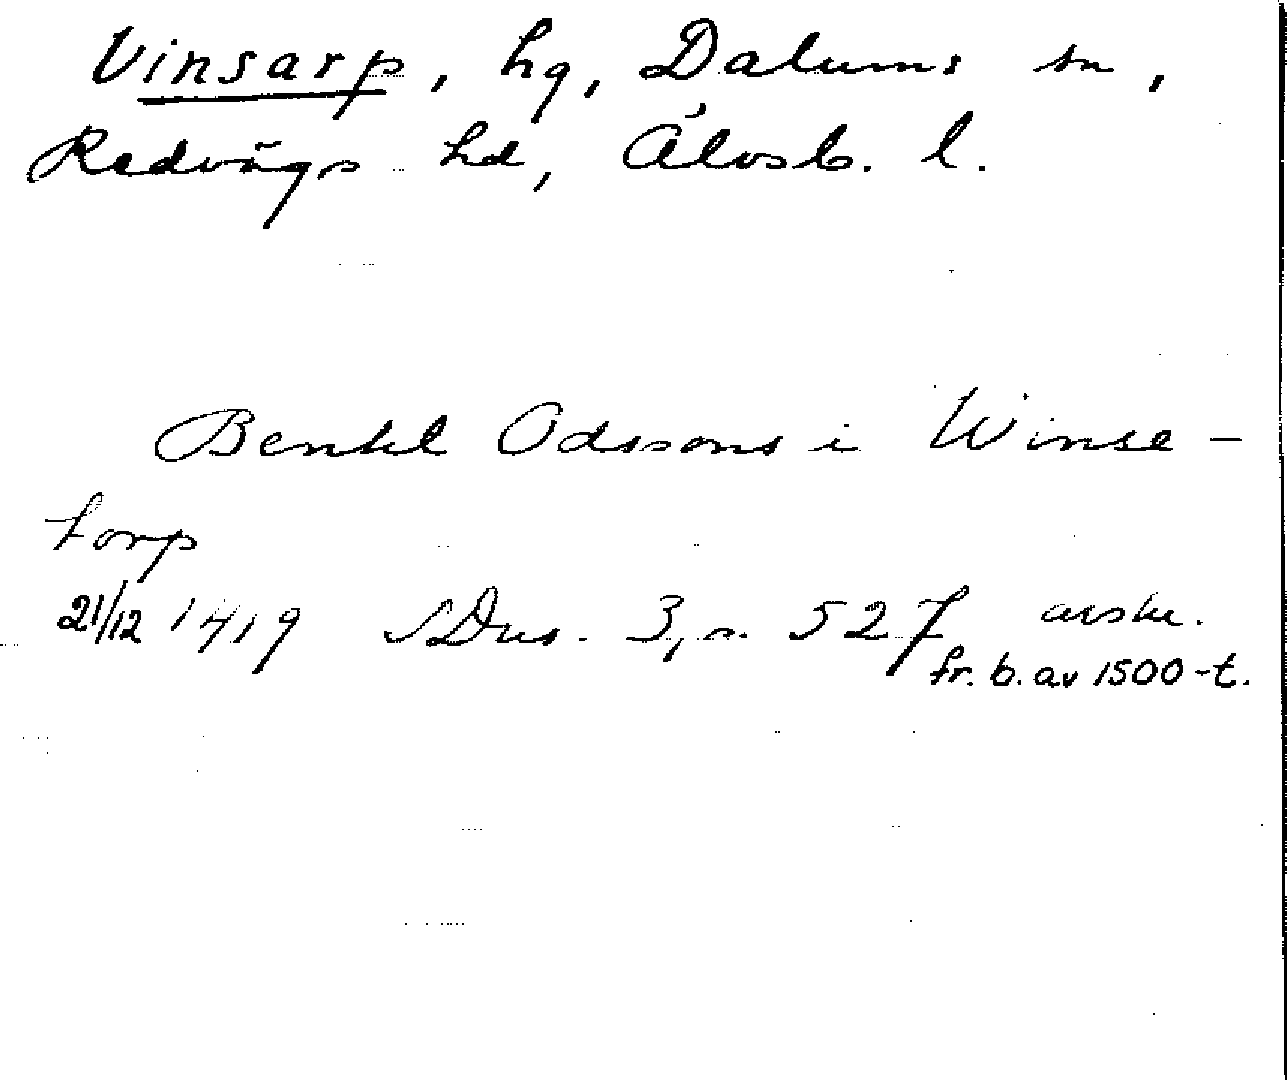 Vinsarp, hg, Dalums sn,
Redvägs hd, Älvsb. l.
Benkt Odssons i Winse-
torp
21/12 1419 SDns. 3, s. 527 avskr.
fr. b. av 1500-t.